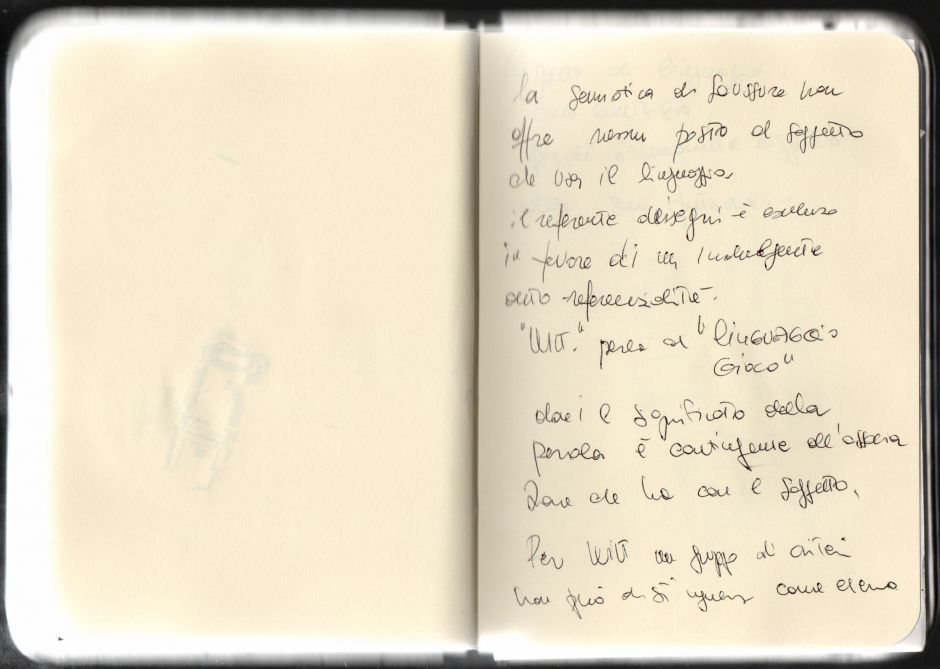 la semiotica di Saussure non
offre nessun posto al soggetto
che usa il linguaggio
il referente dei segni è escluso
in favore di un
auto-referenzialità.
"WITT." parla di "LINGUAGGIO
GIOCO"
il significato della
parola è contingente all'associa
zione che ha con il soggetto.
Per WITT un gruppo di criteri
non può distinguere come